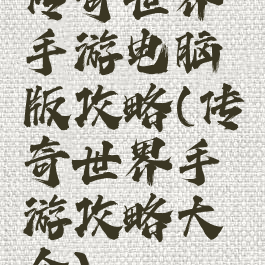 传奇世界
手游电脑
版攻略(传
奇世界手
游攻略大
全)